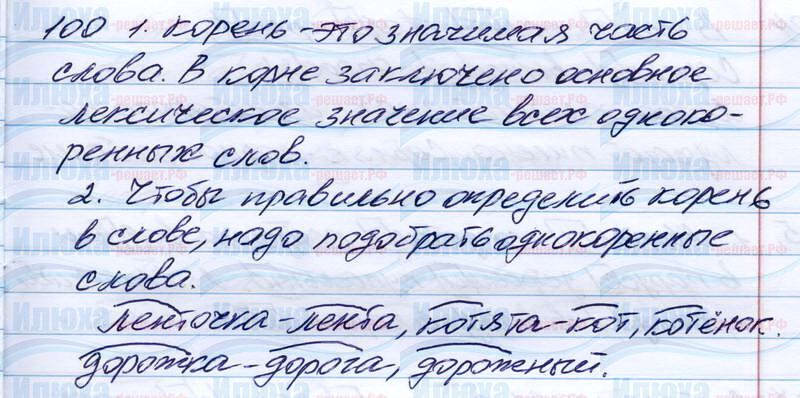 100 1. Корень - это значимая часть
слова. В корне заключено основное
лексическое значение всех одноко-
ренных слов.
2. Чтобы правильно определить корень
в слове, надо подобрать однокоренные
слова.
Ленточка - лента, котята - кот, котёнок.
дорожка - дорога, дорожный.